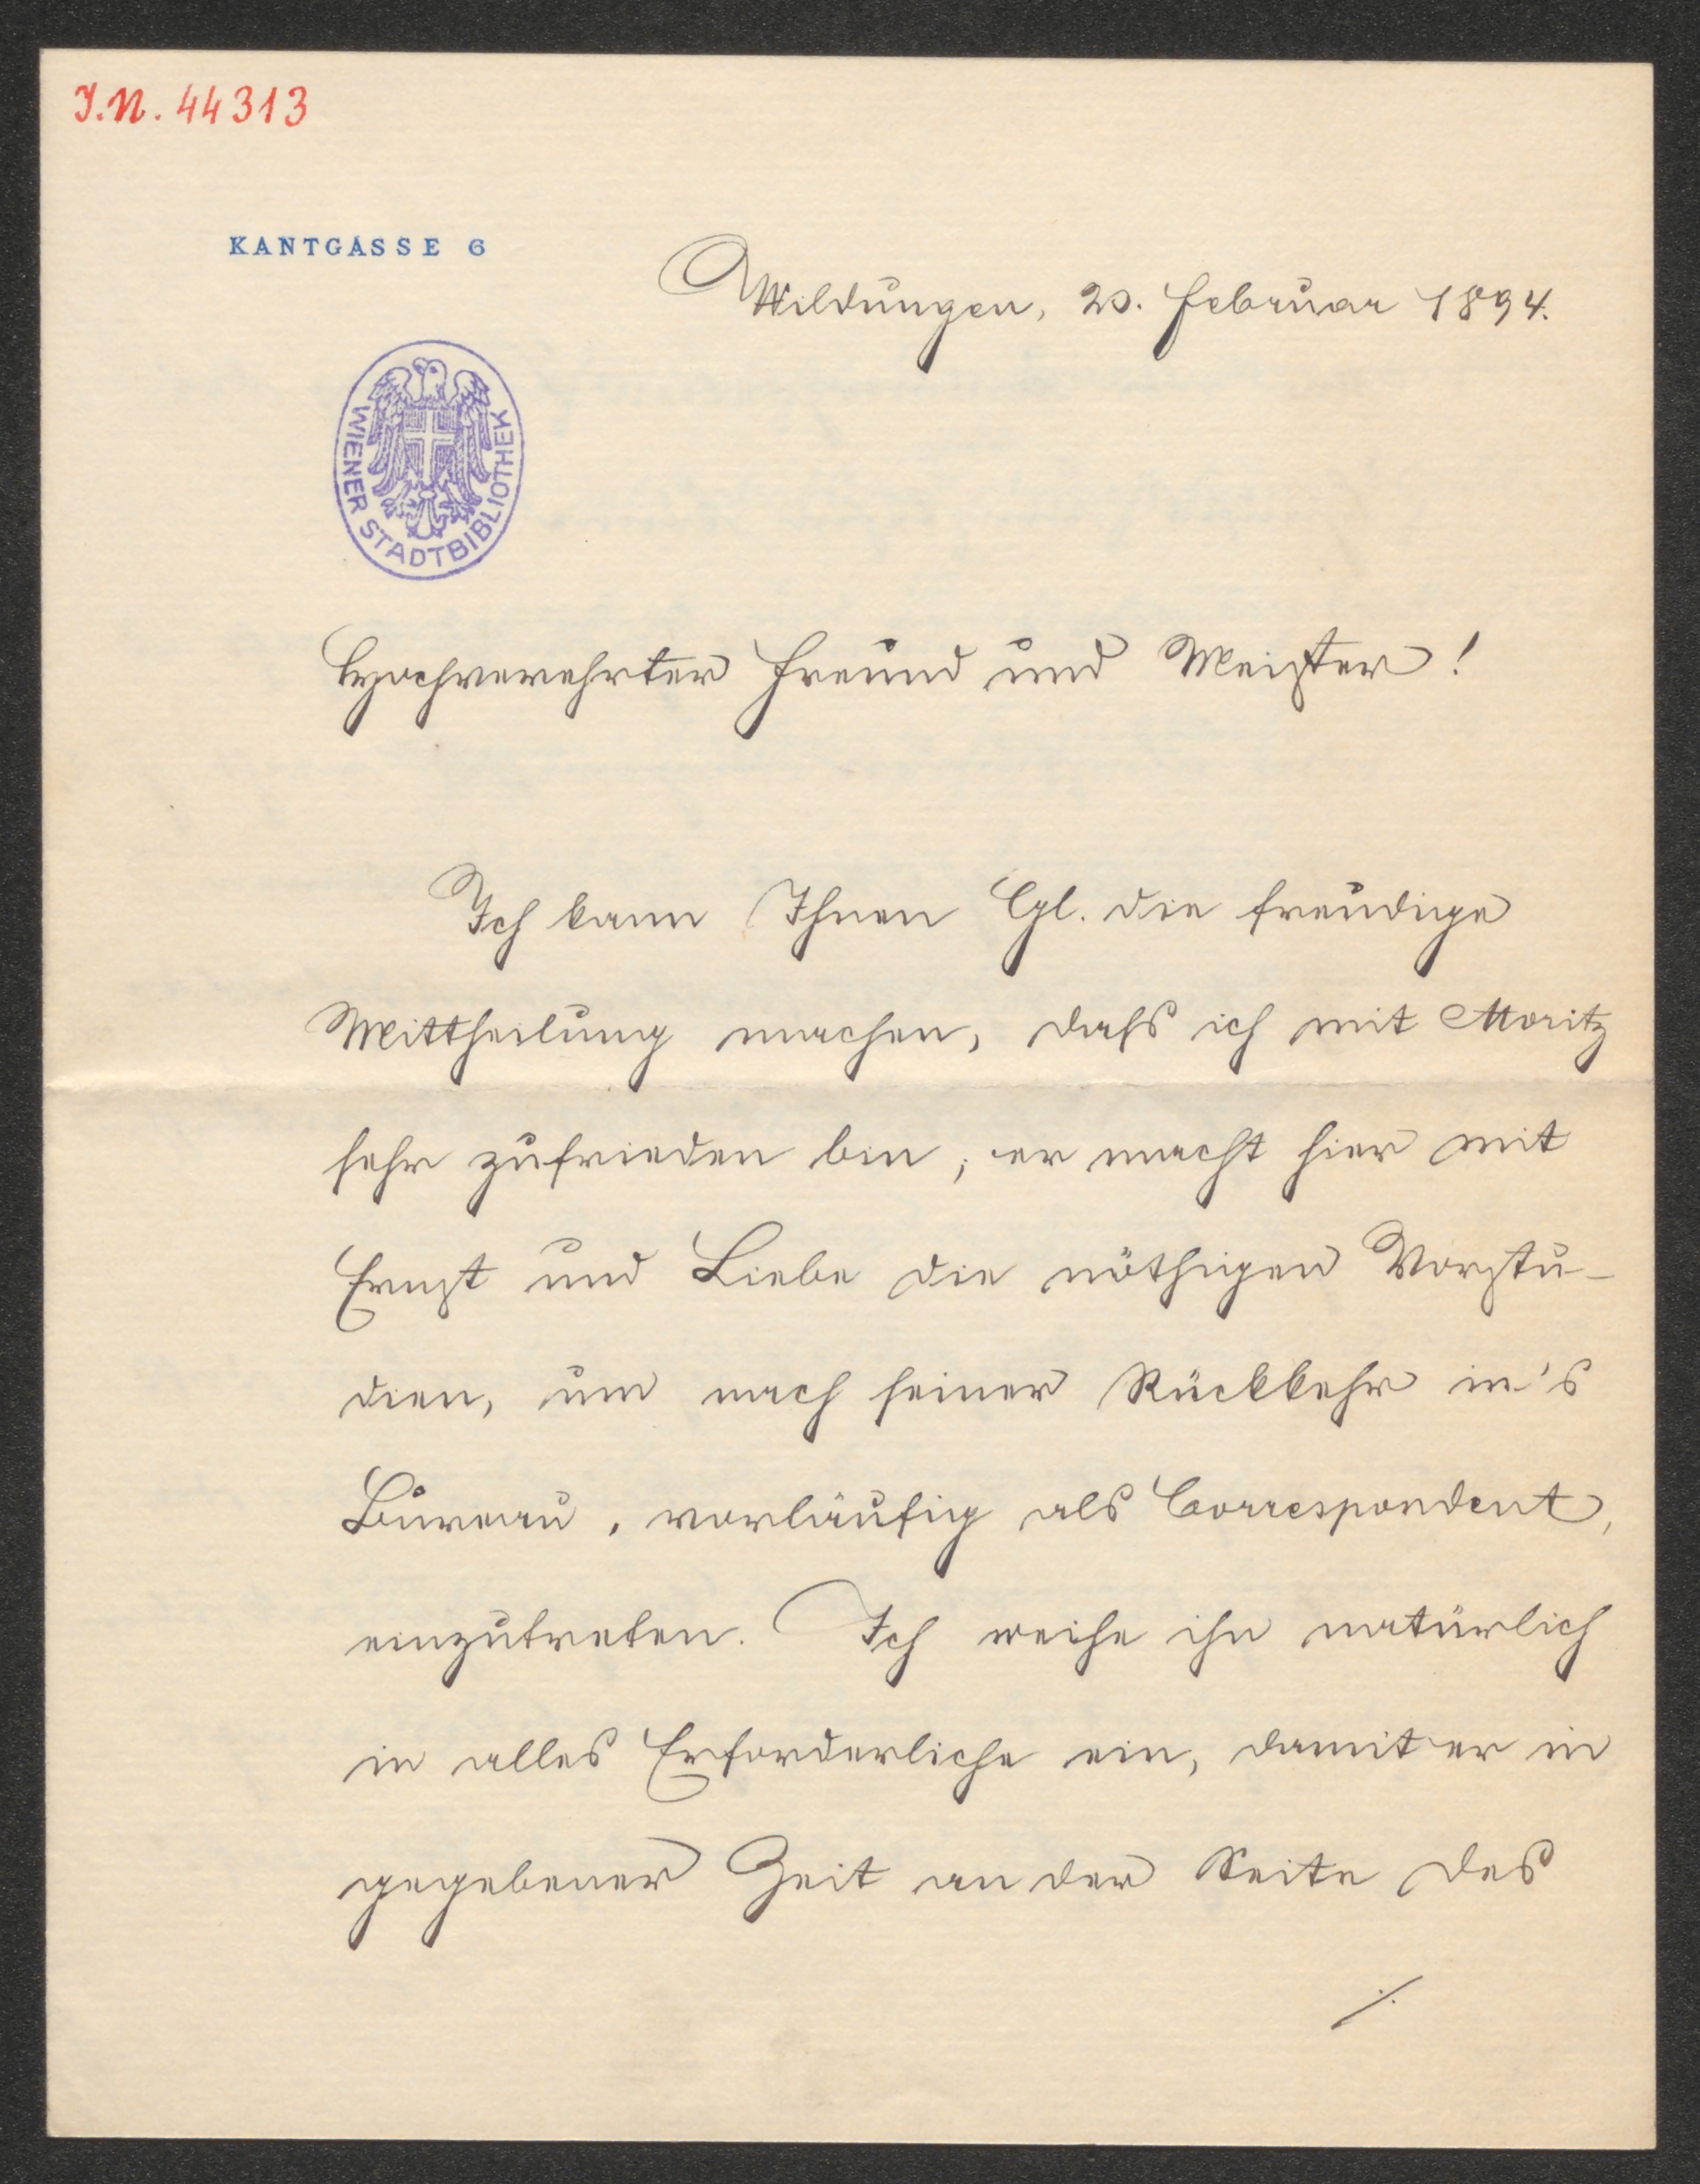 I.N. 44313
KANTGASSE 6
Wildungen, 20. Februar 1894.
WIENER STADTBIBLIOTHEK
Hochverehrter Freund und Meister!
Ich kann Ihnen die freudige
Mittheilung machen, dass ich mit Moritz
sehr zufrieden bin; er macht hier mit
Ernst und Liebe die nöthigen Vorstu-
dien, um nach seiner Rückkehr in's
Bureau, vorläufig als Correspondent,
einzutreten. Ich weihe ihn natürlich
in alles Erforderliche ein, damit er in
gegebener Zeit an der Seite des
./.